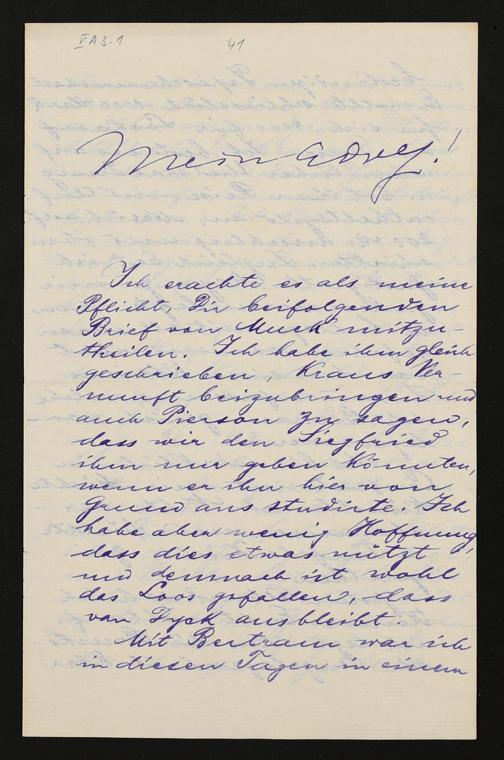 V A 3-1
41
Mein Adolf!
Ich erachte es als meine
Pflicht, Dir beifolgenden
Brief von Muck mitzu-
theilen. Ich habe ihm gleich
geschrieben, Kraus Ver-
nunft beizubringen und
auch Pierson zu sagen,
dass wir den Siegfried
ihm nur geben könnten,
wenn er ihn hier vom
Grund aus studirte. Ich
habe aber wenig Hoffnung,
dass dies etwas nützt
und demnach ist wohl
das Loos gefallen, dass
van Dyck ausbleibt.
Mit Bertram war ich
in diesen Tagen in einem